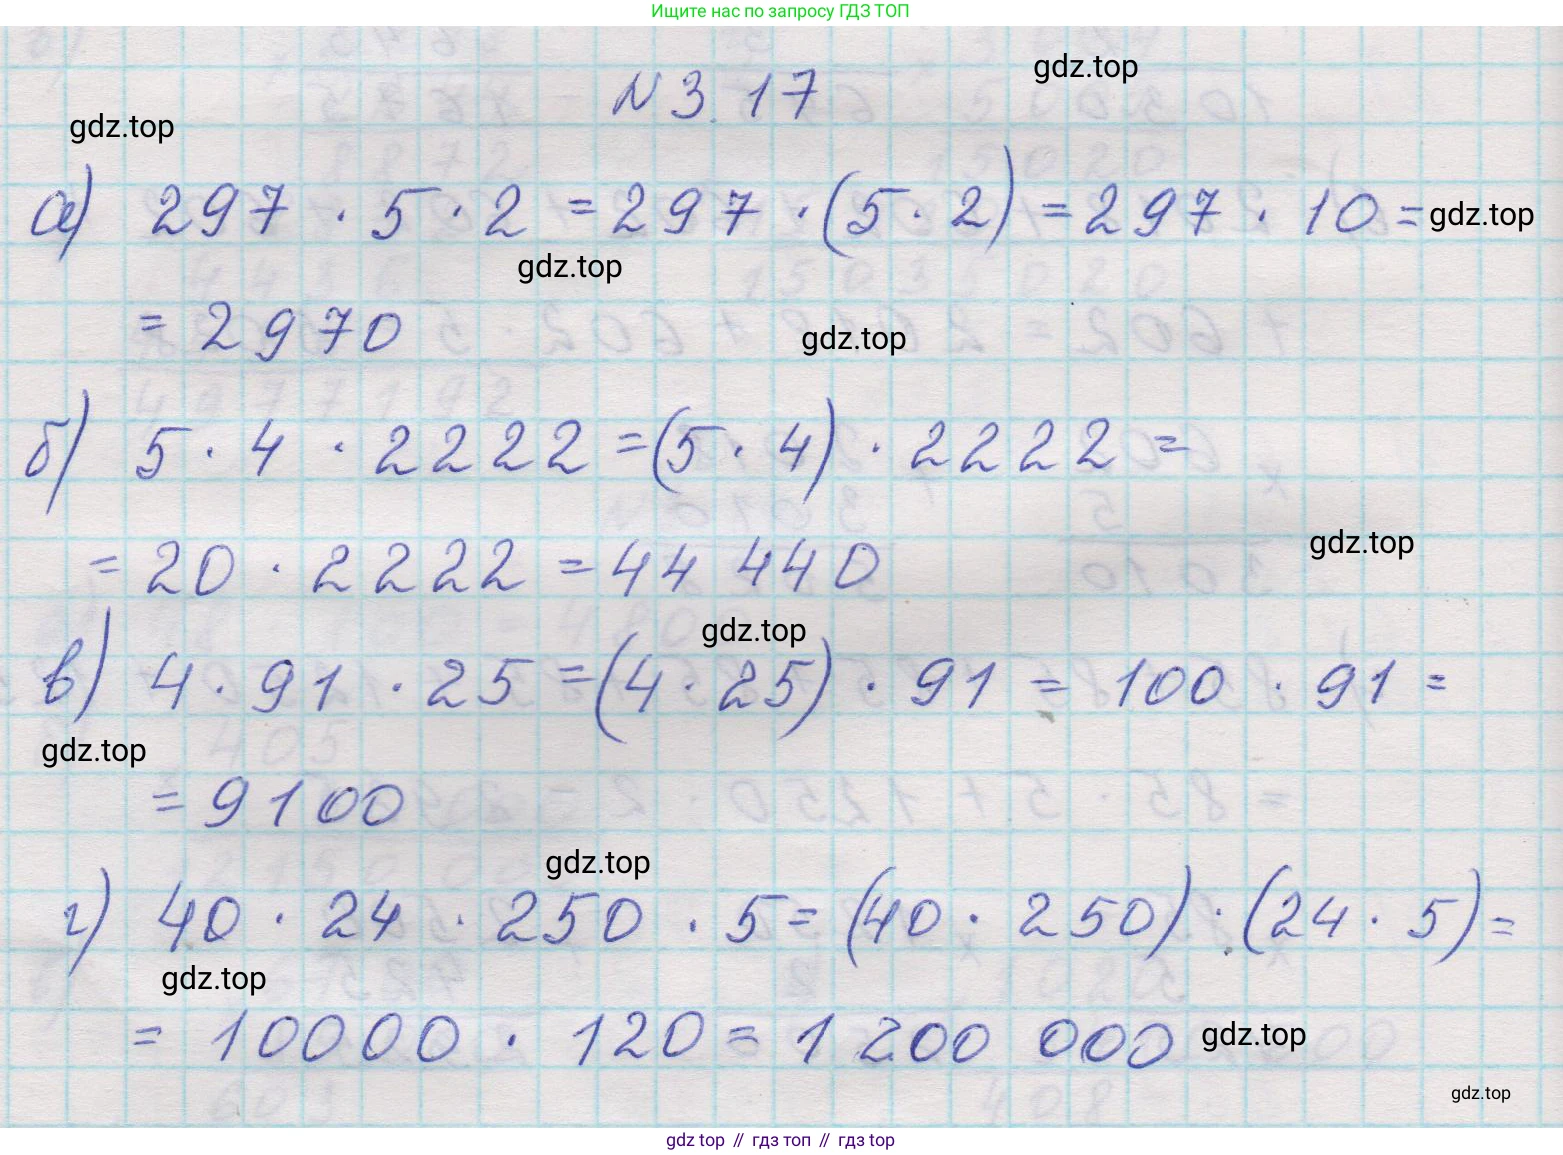 Ищите нас по запросу ГДЗ ТОП
gdz.top
N 3.17
gdz.top
а) 297 · 5 · 2 = 297 · (5 · 2) = 297 · 10 =
gdz.top
gdz.top
= 2970
gdz.top
б) 5 · 4 · 2222 = (5 · 4) · 2222 =
gdz.top
= 20 · 2222 = 44 440
gdz.top
в) 4 · 91 · 25 = (4 · 25) · 91 = 100 · 91 =
gdz.top
= 9100
gdz.top
г) 40 · 24 · 250 · 5 = (40 · 250) · (24 · 5) =
gdz.top
= 10000 · 120 = 1 200 000
gdz.top
gdz.top
gdz top // гдз топ // гдз top